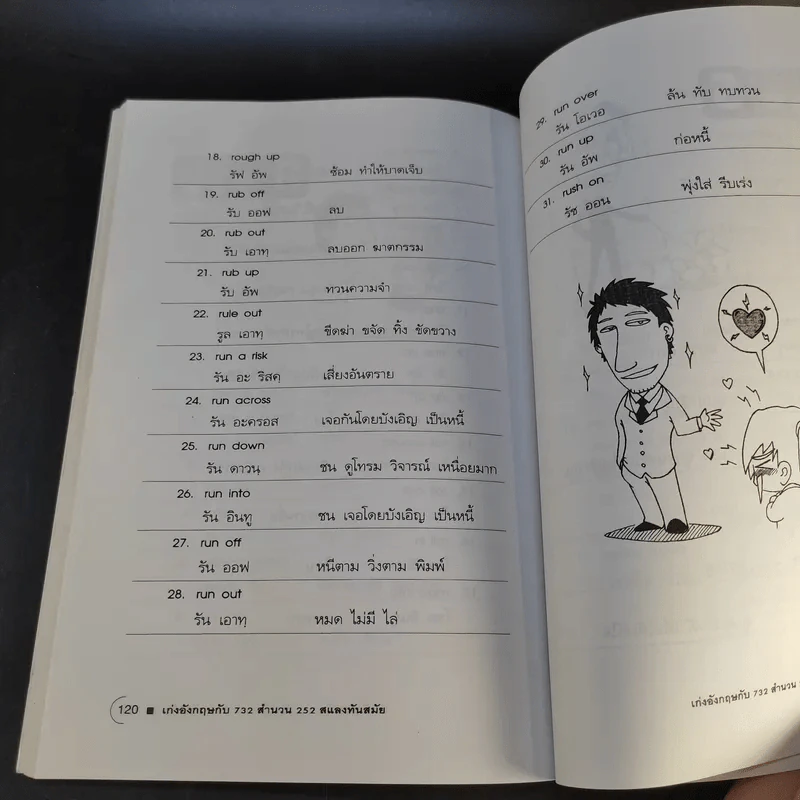 18. rough up
รัฟ อัพ ซ้อม ทำให้บาดเจ็บ
19. rub off
รับ ออฟ ลบ
20. rub out
รับ เอาทฺ ลบออก ฆาตกรรม
21. rub up
รับ อัพ ทวนความจำ
22. rule out
รูล เอาทฺ ขีดฆ่า ขจัด ทิ้ง ขัดขวาง
23. run a risk
รัน อะ ริสคฺ เสี่ยงอันตราย
24. run across
รัน อะครอส เจอกันโดยบังเอิญ เป็นหนี้
25. run down
รัน ดาวนฺ ชน ดูโทรม วิจารณ์ เหนื่อยมาก
26. run into
รัน อินทู ชน เจอโดยบังเอิญ เป็นหนี้
27. run off
รัน ออฟ หนีตาม วิ่งตาม พิมพ์
28. run out
รัน เอาทฺ หมด ไม่มี ไล่
120 ■ เก่งอังกฤษกับ 732 สำนวน 252 สแลงทันสมัย
29. run over
รัน โอเวอ ล้น ทับ ทบทวน
30. run up
รัน อัพ ก่อหนี้
31. rush on
รัช ออน พุ่งใส่ รีบเร่ง
เก่งอังกฤษกับ 732 สำนวน